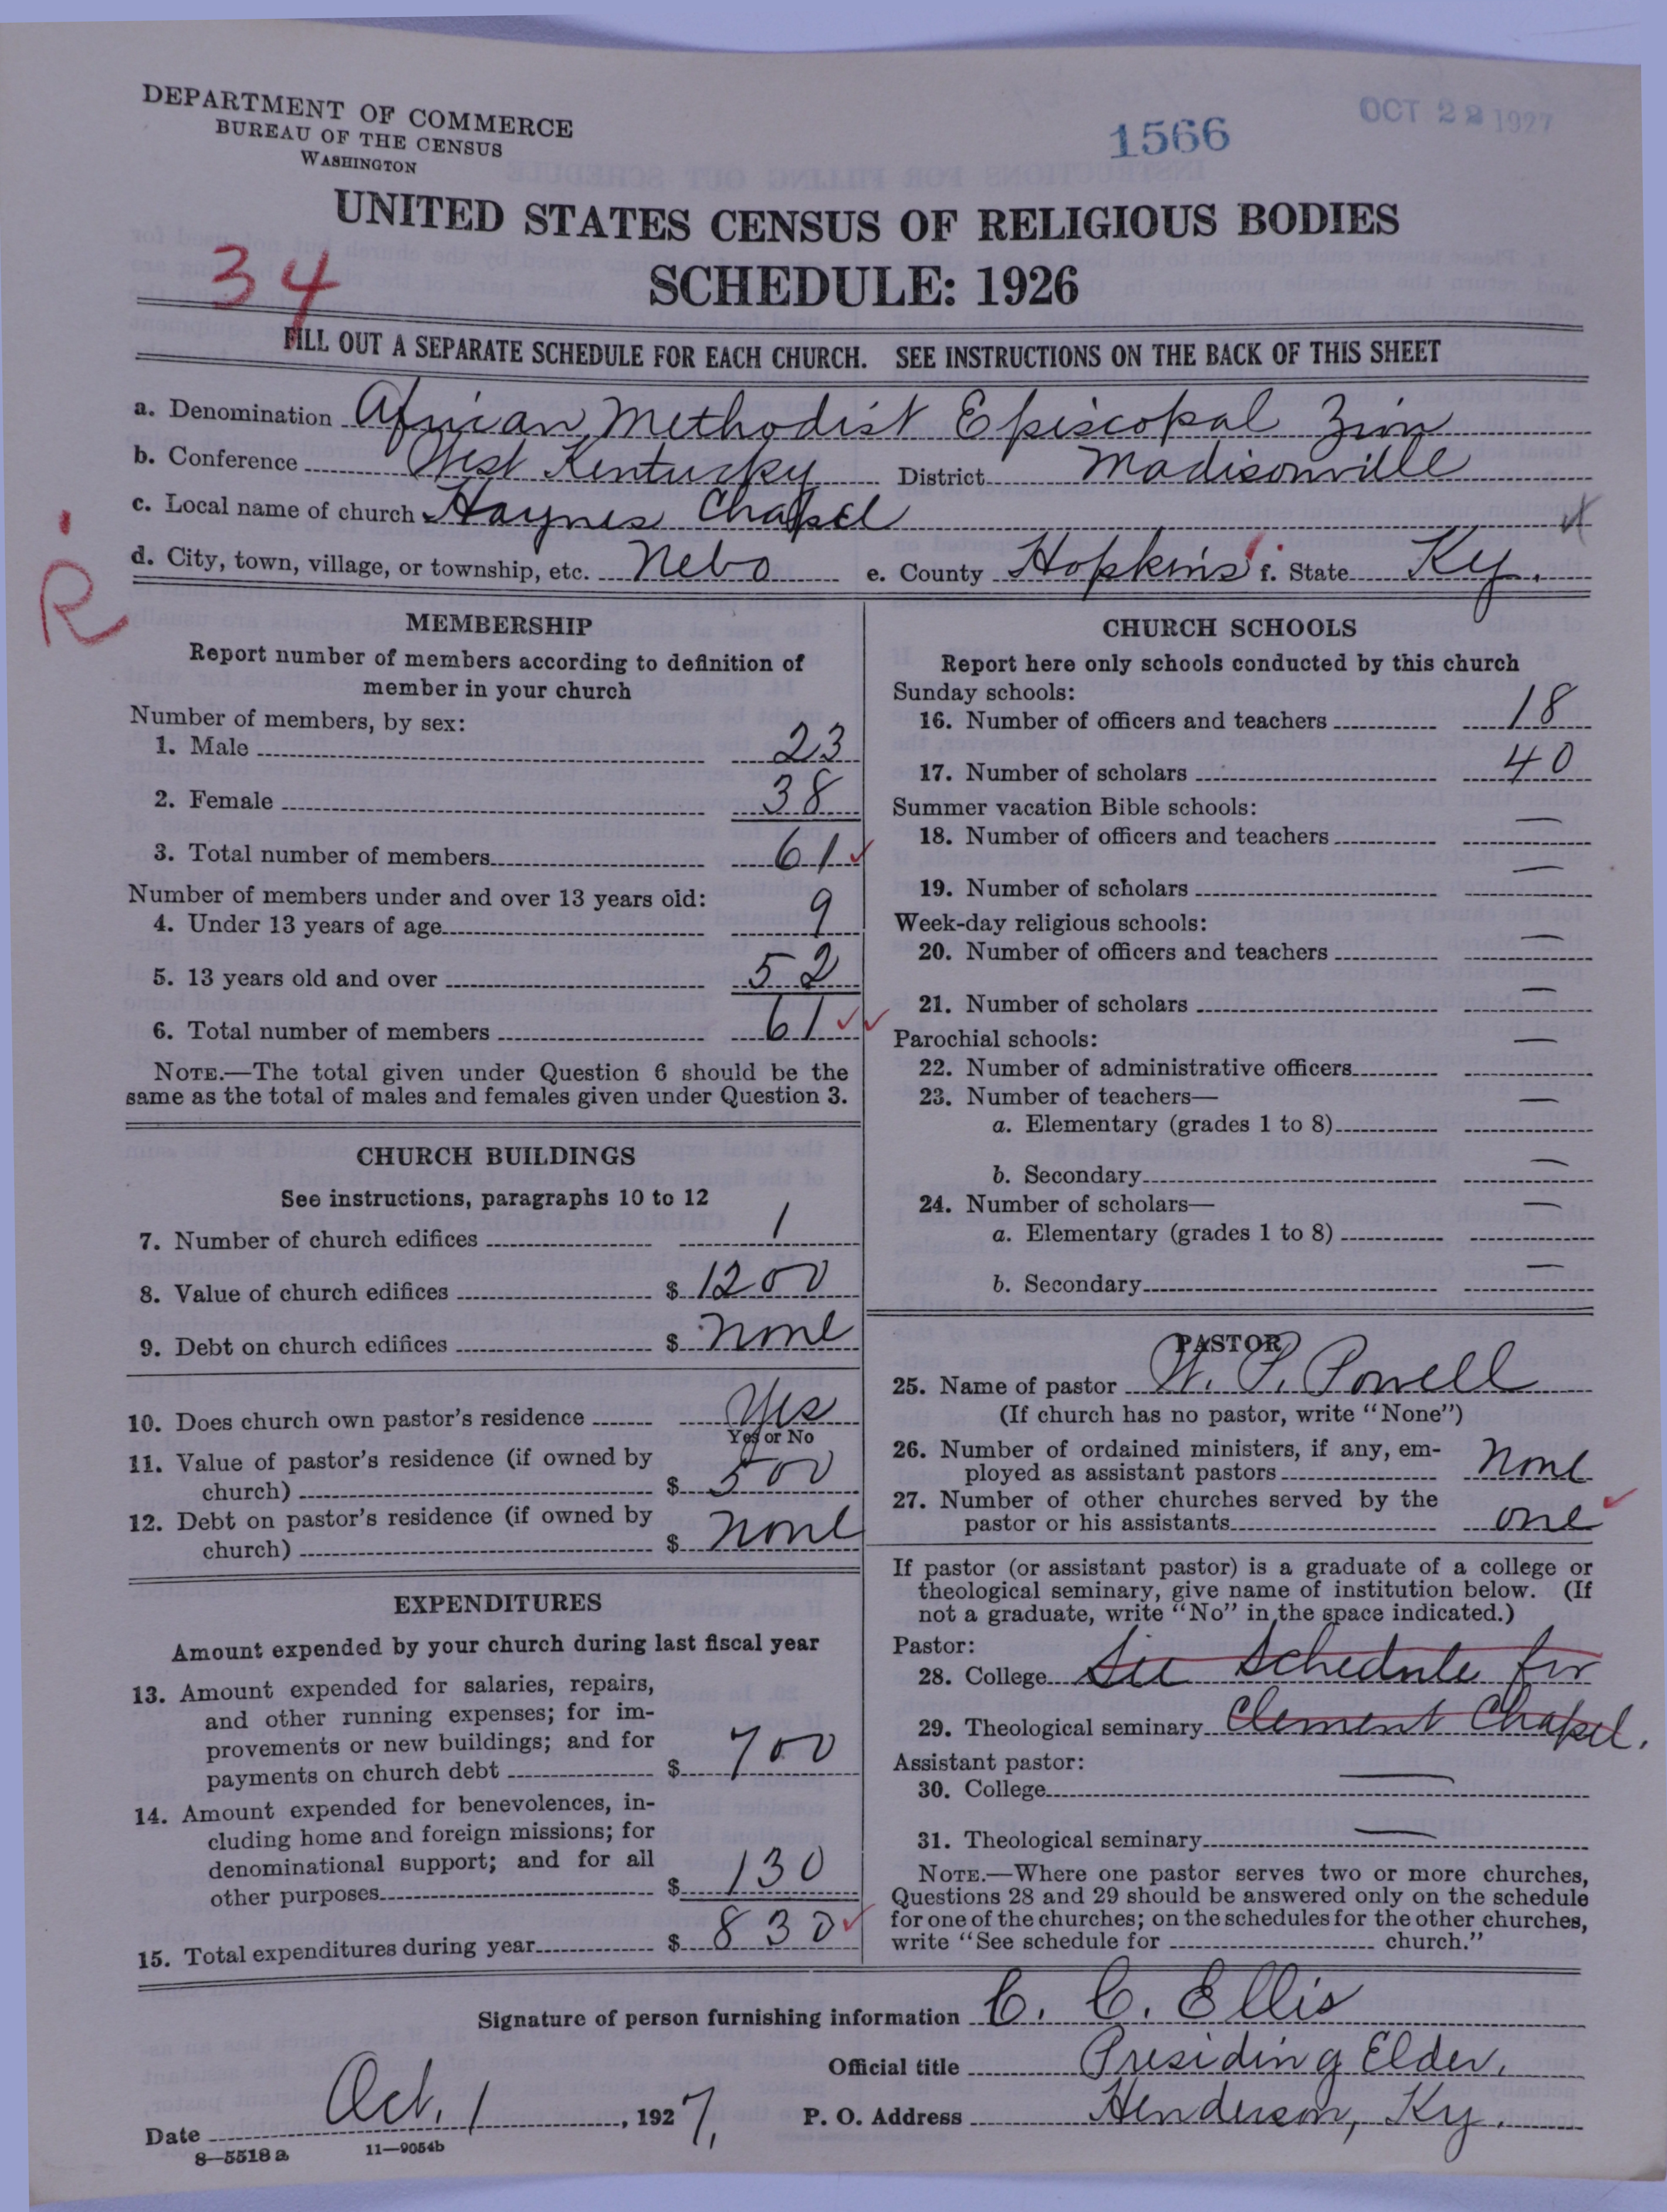 DEPARTMENT OF COMMERCE
BUREAU OF THE CENSUS
WASHINGTON
1566
OCT 22 1927
UNITED STATES CENSUS OF RELIGIOUS BODIES
34
SCHEDULE: 1926
FILL OUT A SEPARATE SCHEDULE FOR EACH CHURCH. SEE INSTRUCTIONS ON THE BACK OF THIS SHEET
a. Denomination African Methodist Episcopal Zion
b. Conference West Kentucky District Madisonville
c. Local name of church Haynes Chapel
d. City, town, village, or township, etc. Nebo e. County Hopkins f. State Ky.
R
MEMBERSHIP
Report number of members according to definition of
member in your church
Number of members, by sex:
1. Male 23
2. Female 38
3. Total number of members 61
Number of members under and over 13 years old:
4. Under 13 years of age 9
5. 13 years old and over 52
6. Total number of members 61
NOTE.—The total given under Question 6 should be the
same as the total of males and females given under Question 3.
CHURCH BUILDINGS
See instructions, paragraphs 10 to 12
7. Number of church edifices 1
8. Value of church edifices $ 1200
9. Debt on church edifices $ none
10. Does church own pastor's residence Yes
Yes or No
11. Value of pastor's residence (if owned by
church) $ 500
12. Debt on pastor's residence (if owned by
church) $ none
EXPENDITURES
Amount expended by your church during last fiscal year
13. Amount expended for salaries, repairs,
and other running expenses; for im-
provements or new buildings; and for
payments on church debt $ 700
14. Amount expended for benevolences, in-
cluding home and foreign missions; for
denominational support; and for all
other purposes $ 130
15. Total expenditures during year $ 830
CHURCH SCHOOLS
Report here only schools conducted by this church
Sunday schools:
16. Number of officers and teachers 18
17. Number of scholars 40
Summer vacation Bible schools:
18. Number of officers and teachers —
19. Number of scholars —
Week-day religious schools:
20. Number of officers and teachers —
21. Number of scholars —
Parochial schools:
22. Number of administrative officers —
23. Number of teachers—
a. Elementary (grades 1 to 8) —
b. Secondary —
24. Number of scholars—
a. Elementary (grades 1 to 8) —
b. Secondary —
PASTOR
25. Name of pastor W. P. Powell
(If church has no pastor, write "None")
26. Number of ordained ministers, if any, em-
ployed as assistant pastors None
27. Number of other churches served by the
pastor or his assistants one
If pastor (or assistant pastor) is a graduate of a college or
theological seminary, give name of institution below. (If
not a graduate, write "No" in the space indicated.)
Pastor:
28. College See Schedule for
29. Theological seminary Clement Chapel.
Assistant pastor:
30. College —
31. Theological seminary —
NOTE.—Where one pastor serves two or more churches,
Questions 28 and 29 should be answered only on the schedule
for one of the churches; on the schedules for the other churches,
write "See schedule for church."
Signature of person furnishing information C. C. Ellis
Official title Presiding Elder.
Date Oct. 1, 1927, P. O. Address Henderson, Ky.
8—5518 a 11—9054b